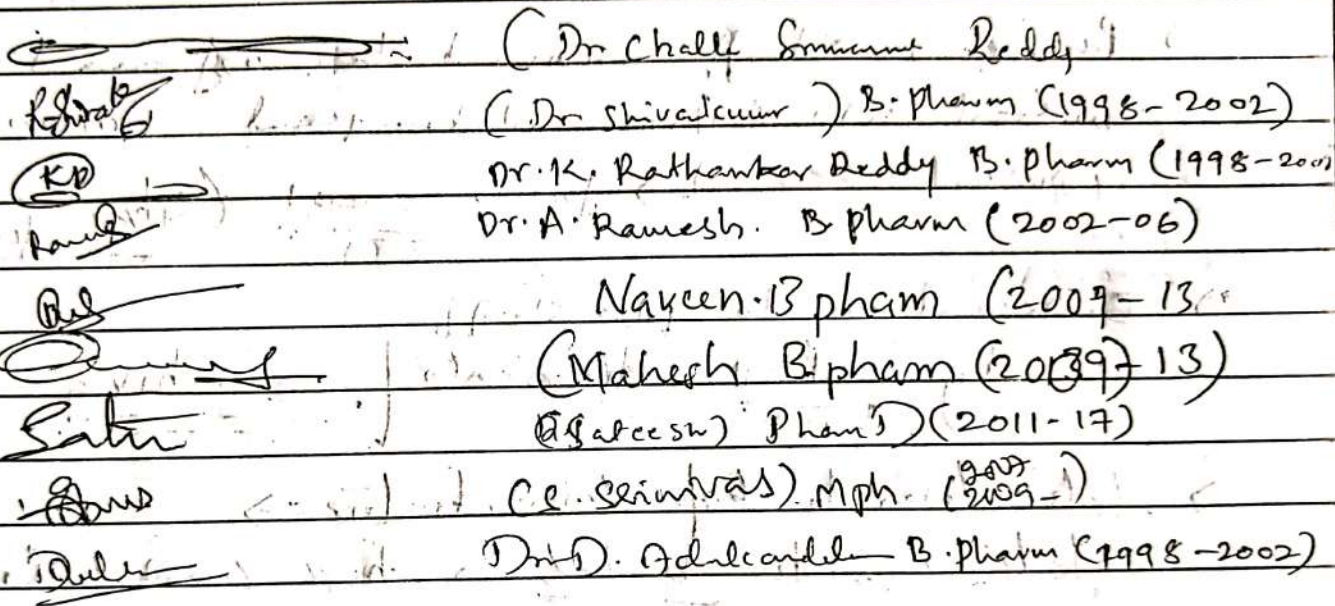 (Dr Challa Reddy
R.Shivak (Dr Shivakumar) B.pharm (1998-2002)
KR Dr.K. Rathankar Reddy B.pharm (1998-2002
Ramesh Dr.A.Ramesh. B pharm (2002-06)
Naveen.B pham (2009-13
(Mahesh B.pham (2009-13)
Satee (Sateesh) PhamD (2011-17)
(C. Srinivas) Mph. (2007 2009-)
Dr.D. B.pharm (1998-2002)